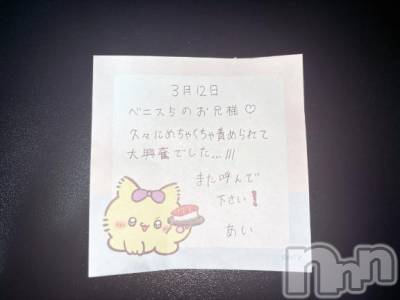 3月12日
ベニス5のお兄様♡
久々にめちゃくちゃ責められて
大興奮でした...///
また呼んで
下さい!
あい